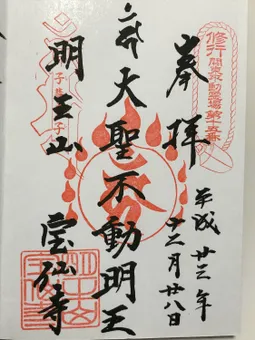 奉拝
修行
関東不動霊場第十五番
平成廿三年
十二月廿八日
大聖不動明王
明王山
宝仙寺